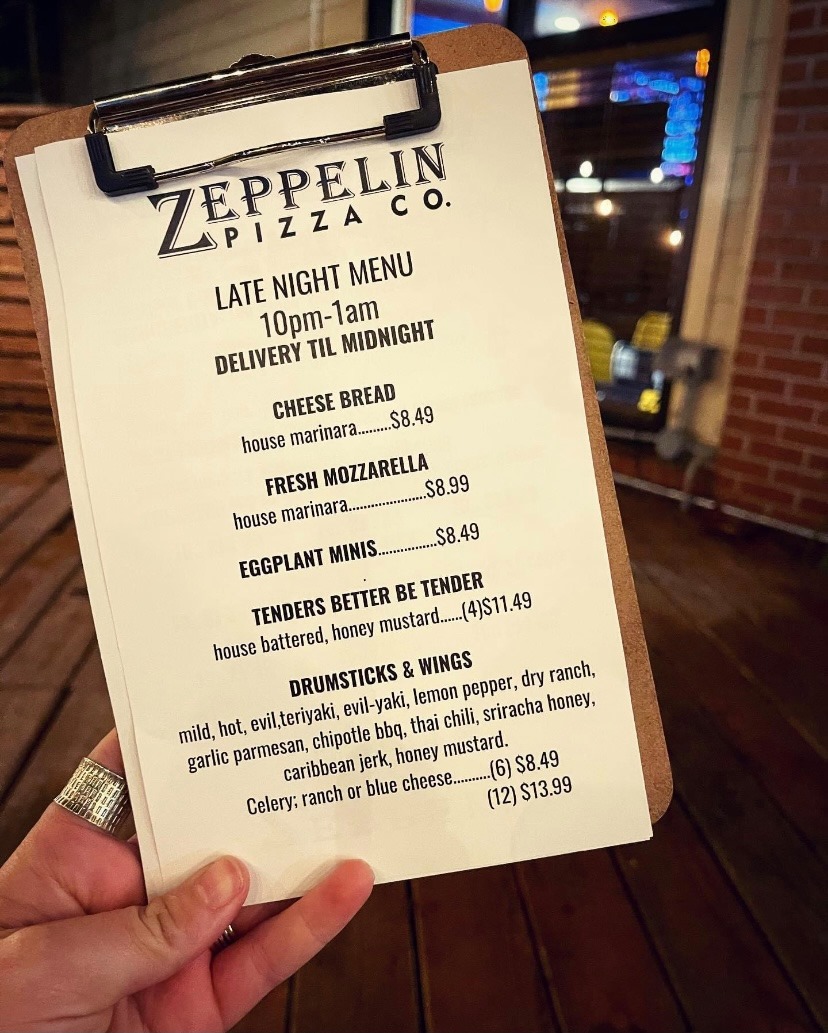 ZEPPELIN
PIZZA CO.
LATE NIGHT MENU
10pm-1am
DELIVERY TIL MIDNIGHT
CHEESE BREAD
house marinara.........$8.49
FRESH MOZZARELLA
house marinara.....................$8.99
EGGPLANT MINIS...............$8.49
TENDERS BETTER BE TENDER
house battered, honey mustard......(4)$11.49
DRUMSTICKS & WINGS
mild, hot, evil,teriyaki, evil-yaki, lemon pepper, dry ranch,
garlic parmesan, chipotle bbq, thai chili, sriracha honey,
caribbean jerk, honey mustard.
Celery; ranch or blue cheese..........(6) $8.49
(12) $13.99